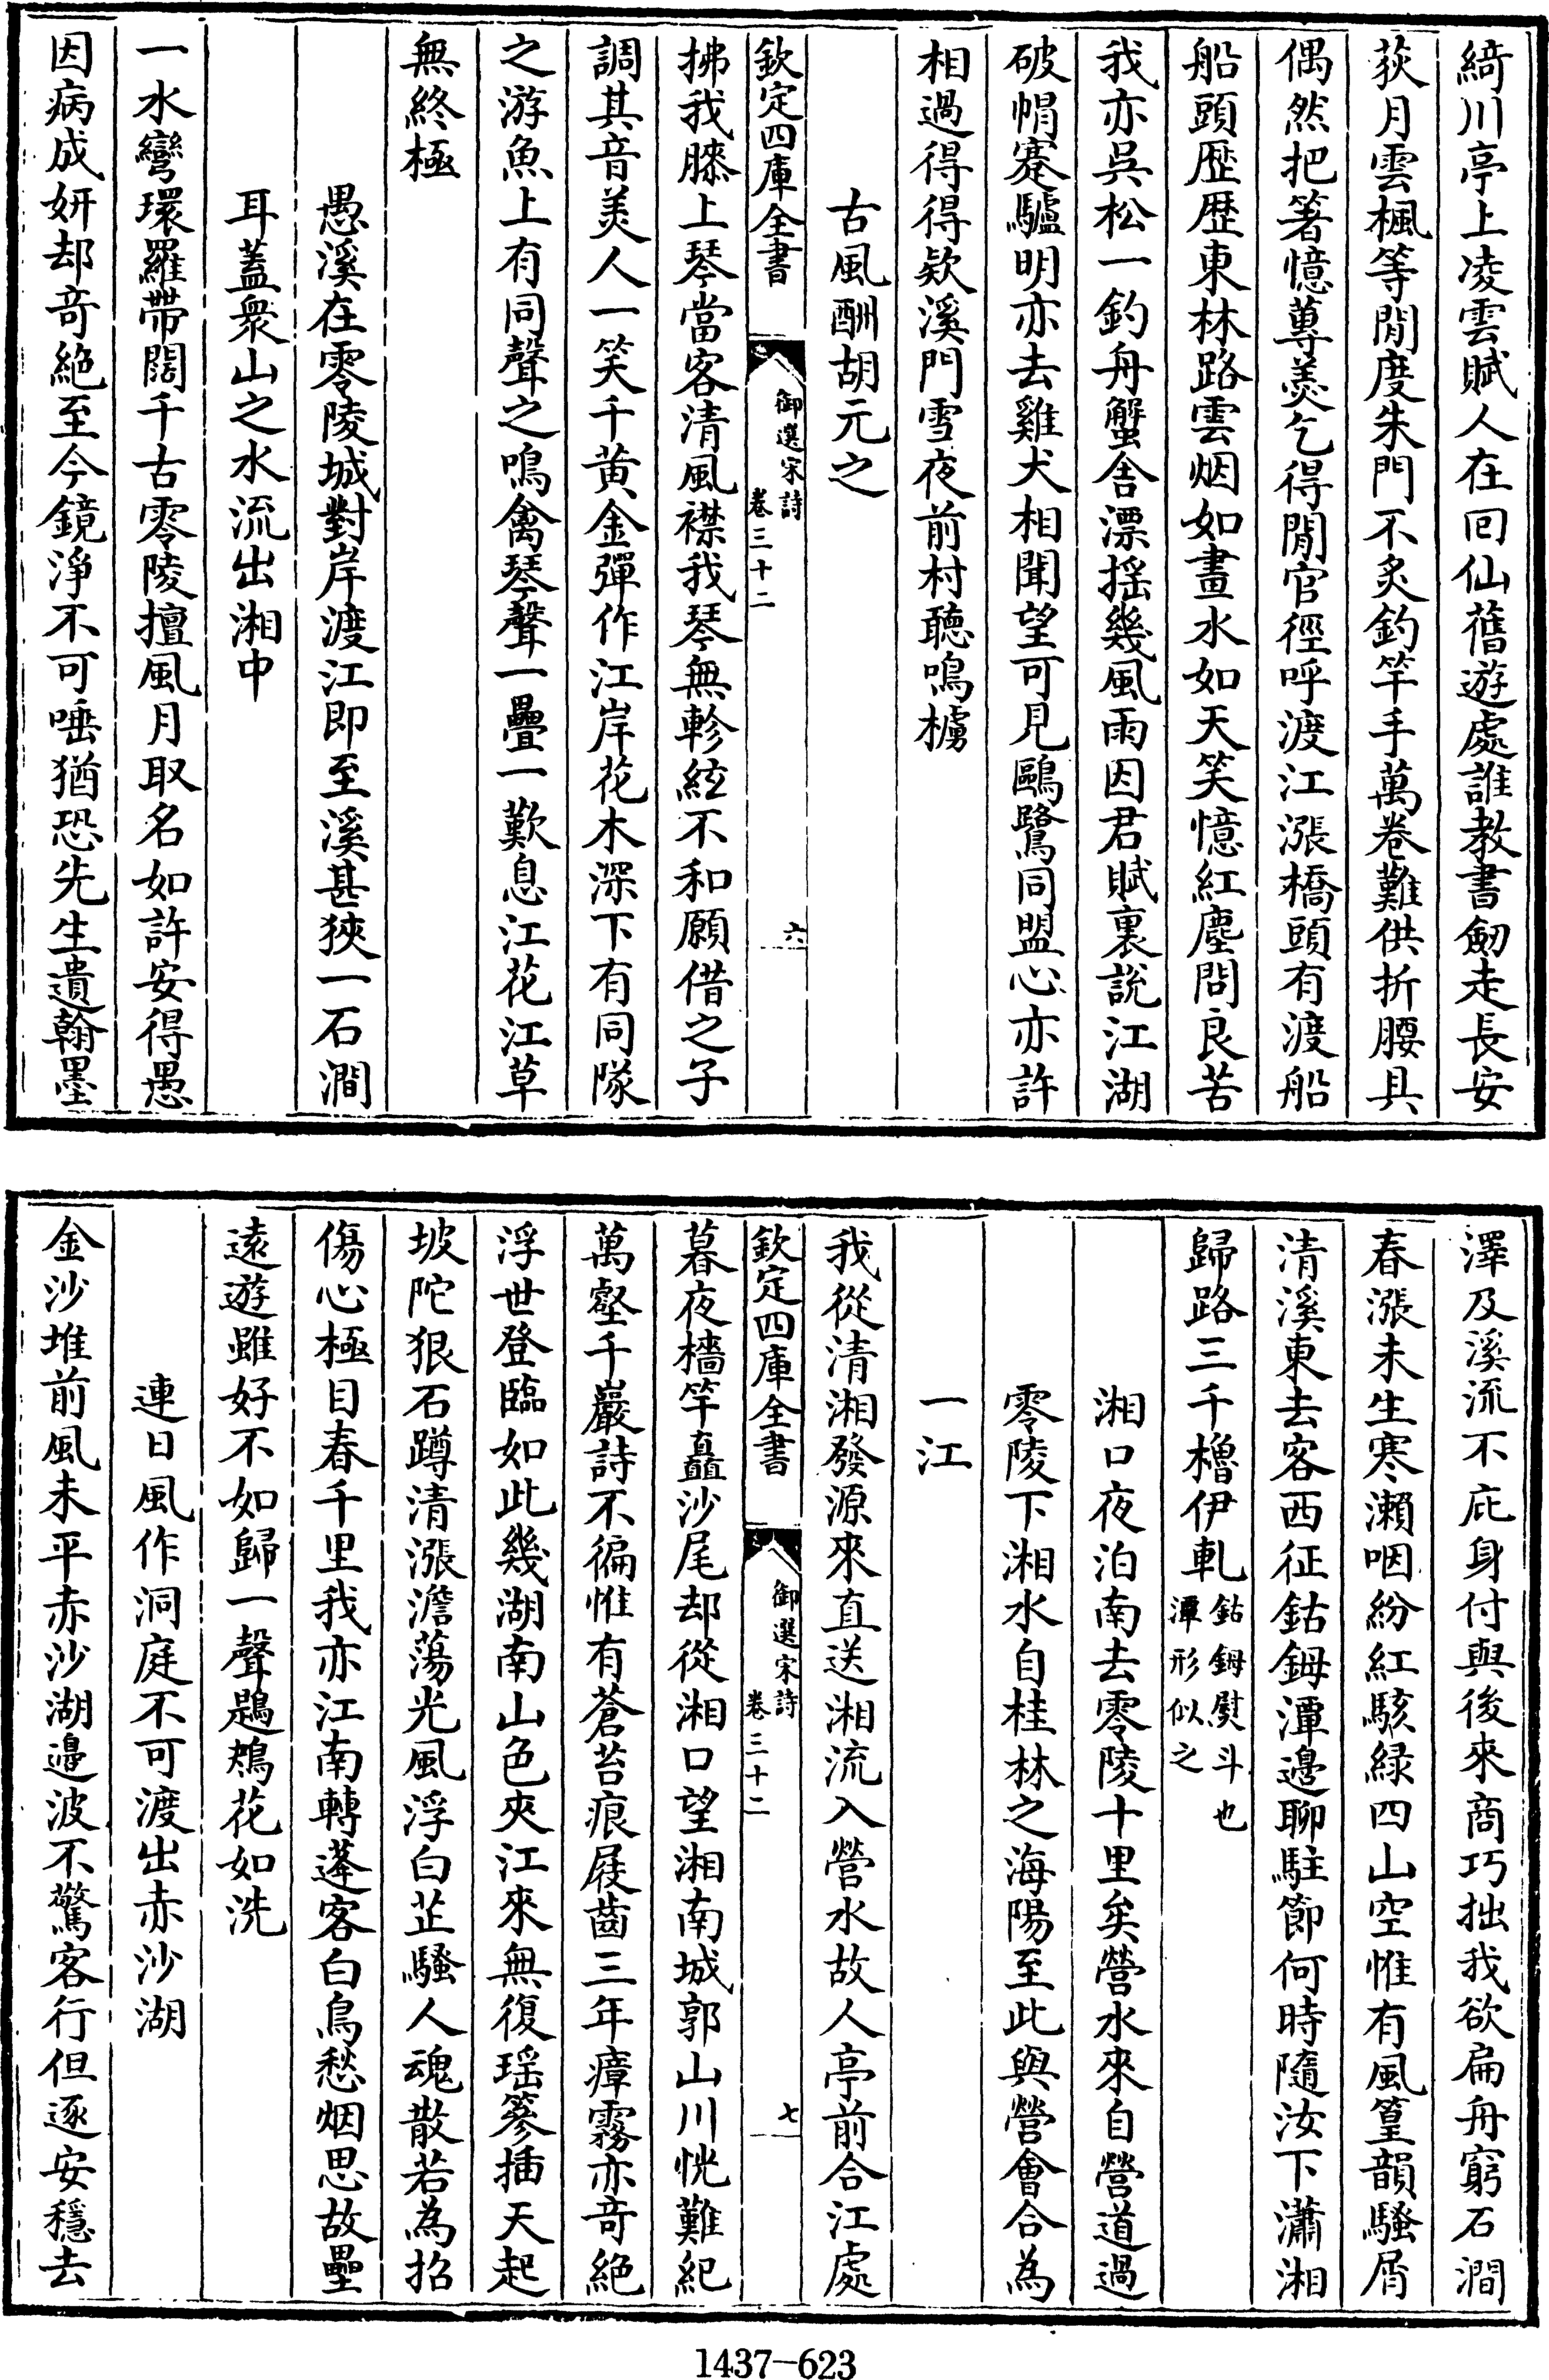 綺川亭上凌雲賦人在回仙舊遊處誰教書劒走長安
荻月雲楓等閒度朱門不炙釣竿手萬卷難供折腰具
偶然把箸憶蓴羮乞得閒官徑呼渡江漲橋頭有渡船
船頭歴歴東林路雲烟如畫水如天笑憶紅塵問良苦
我亦吳松一釣舟蟹舍漂揺幾風雨因君賦裏說江湖
破帽蹇驢明亦去雞犬相聞望可見鷗鷺同盟心亦許
相過得得欵溪門雪夜前村聽鳴櫓
古風酬胡元之
欽定四庫全書
御選宋詩
卷三十二
六
拂我膝上琴當客清風襟我琴無軫絃不和願借之子
調其音美人一笑千黄金彈作江岸花木深下有同隊
之游魚上有同聲之鳴禽琴聲一疊一歎息江花江草
無終極
愚溪在零陵城對岸渡江即至溪甚狹一石澗
耳蓋衆山之水流出湘中
一水彎環羅帶闊千古零陵擅風月取名如許安得愚
因病成妍却奇絶至今鏡淨不可唾猶恐先生遺翰墨
澤及溪流不庇身付與後來商巧拙我欲扁舟窮石澗
春漲未生寒瀨咽紛紅駭緑四山空惟有風篁韻騷屑
清溪東去客西征鈷鉧潭邉聊駐節何時隨汝下瀟湘
歸路三千櫓伊軋鈷鉧熨斗也潭形似之
湘口夜泊南去零陵十里矣營水來自營道過
零陵下湘水自桂林之海陽至此與營會合為
一江
我從清湘發源來直送湘流入營水故人亭前合江處
欽定四庫全書
御選宋詩
卷三十二
七
暮夜檣竿矗沙尾却從湘口望湘南城郭山川恍難紀
萬壑千巖詩不徧惟有蒼苔痕屐齒三年瘴霧亦奇絶
浮世登臨如此幾湖南山色夾江來無復瑶篸插天起
坡陀狠石蹲清漲澹蕩光風浮白芷騷人魂散若為招
傷心極目春千里我亦江南轉蓬客白鳥愁烟思故壘
逺遊雖好不如歸一聲鶗鴂花如洗
連日風作洞庭不可渡出赤沙湖
金沙堆前風未平赤沙湖邉波不驚客行但逐安穩去
1437-623